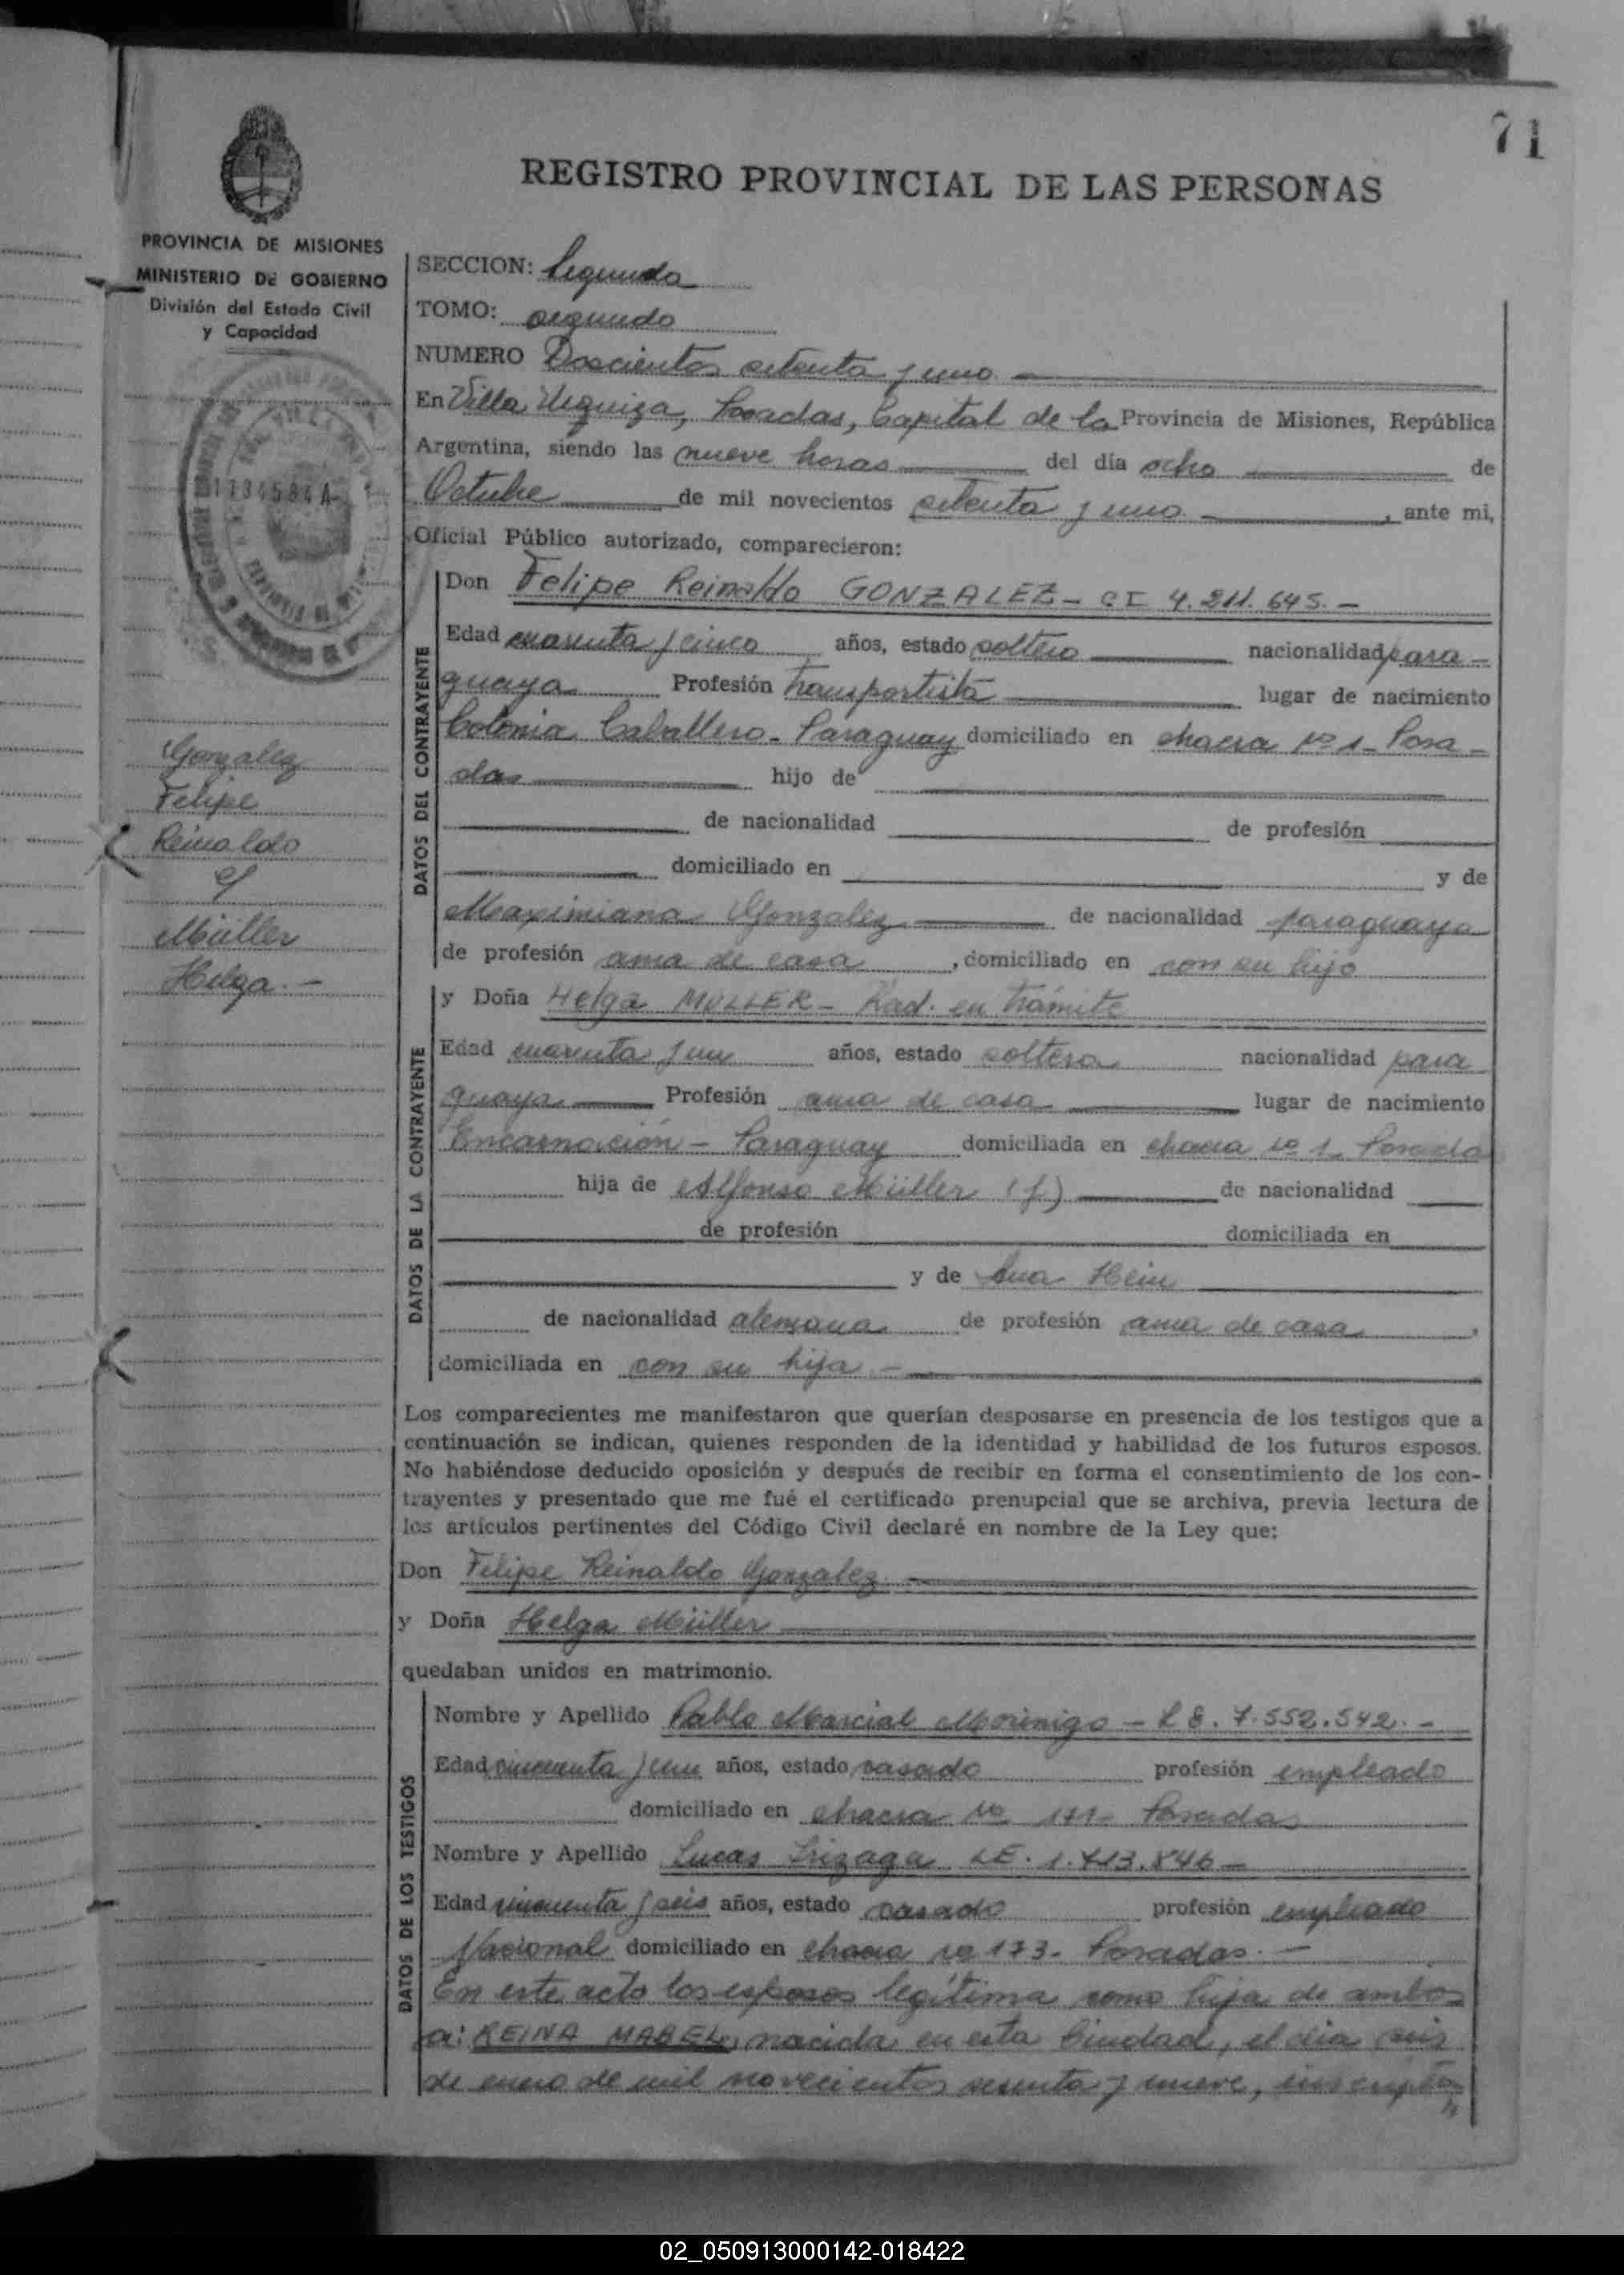 71
REGISTRO PROVINCIAL DE LAS PERSONAS
PROVINCIA DE MISIONES
MINISTERIO DE GOBIERNO
División del Estado Civil
y Capacidad
Gonzalez
Felipe
Reinaldo
c/
Müller
Helga. -
SECCION: Segunda
TOMO: segundo
NUMERO Doscientos setenta y uno
En Villa Urquiza, Posadas, Capital de la Provincia de Misiones, República
Argentina, siendo las nueve horas del día ocho de
Octubre de mil novecientos setenta y uno , ante mi,
Oficial Público autorizado, comparecieron:
DATOS DEL CONTRAYENTE
Don Felipe Reinaldo GONZALEZ - CI 4.211.645. -
Edad cuarenta y cinco años, estado soltero nacionalidad para-
guaya Profesión transportista lugar de nacimiento
Colonia Caballero - Paraguay domiciliado en chacra Nº 1 - Posa-
das hijo de
de nacionalidad de profesión
domiciliado en y de
Maximiana Gonzalez de nacionalidad paraguaya
de profesión ama de casa , domiciliado en con su hijo
DATOS DE LA CONTRAYENTE
y Doña Helga MULLER - Rad. en trámite
Edad cuarenta y un años, estado soltera nacionalidad para
guaya Profesión ama de casa lugar de nacimiento
Encarnación - Paraguay domiciliada en chacra Nº 1 - Posadas
hija de Alfonso Müller (f) de nacionalidad
de profesión domiciliada en
y de Ana Hein
de nacionalidad alemana de profesión ama de casa ,
domiciliada en con su hija -
Los comparecientes me manifestaron que querían desposarse en presencia de los testigos que a
continuación se indican, quienes responden de la identidad y habilidad de los futuros esposos.
No habiéndose deducido oposición y después de recibir en forma el consentimiento de los con-
trayentes y presentado que me fué el certificado prenupcial que se archiva, previa lectura de
los artículos pertinentes del Código Civil declaré en nombre de la Ley que:
Don Felipe Reinaldo Gonzalez
y Doña Helga Müller
quedaban unidos en matrimonio.
DATOS DE LOS TESTIGOS
Nombre y Apellido Pablo Marcial Morinigo - 7.552.542. -
Edad cincuenta y un años, estado casado profesión empleado
domiciliado en chacra Nº 171 - Posadas
Nombre y Apellido Lucas LE. 1.713.846 -
Edad cincuenta y seis años, estado casado profesión empleado
Nacional domiciliado en chacra Nº 173 - Posadas. -
En este acto los esposos legítima como hija de ambos
a: REINA MABEL, nacida en esta Ciudad, el día seis
de enero de mil novecientos sesenta y nueve, inscripta
02_050913000142-018422